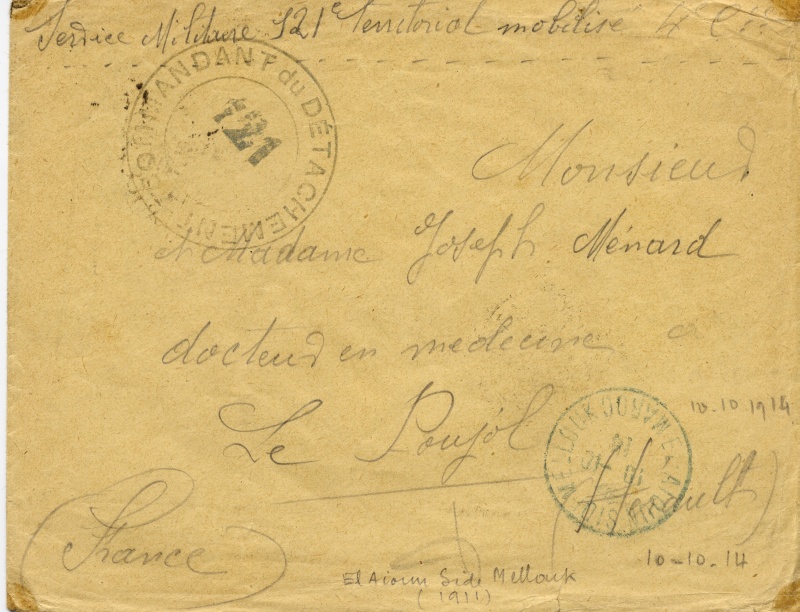 Service Militaire 121e territorial mobilisé
COMMANDANT du DÉTACHEMENT
121
Monsieur
et Madame Joseph Ménard
docteur en medecine
Le Poujol
(Herault)
(France)
10-10 1914
10-10-14
El Aioun Sidi Mellouk
(1911)